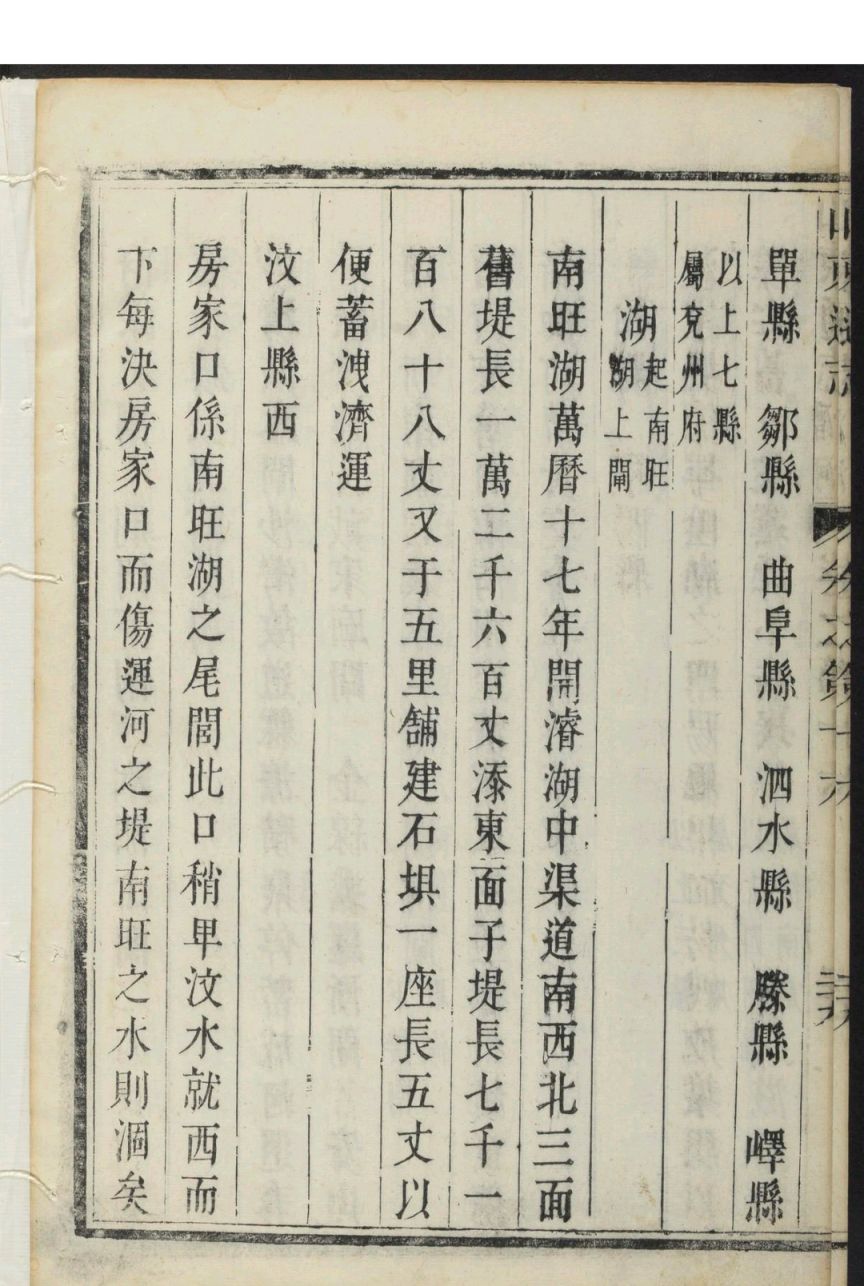 單縣　鄒縣　曲阜縣　泗水縣　滕縣　嶧縣
以上七縣
屬兗州府
湖
起南旺
湖上閘
南旺湖萬曆十七年開濬湖中渠道南西北三面
舊堤長一萬二千六百丈添東面子堤長七千一
百八十八丈又于五里舖建石埧一座長五丈以
便蓄洩濟運
汶上縣西
房家口係南旺湖之尾閭此口稍卑汶水就西而
下每決房家口而傷運河之堤南旺之水則涸矣